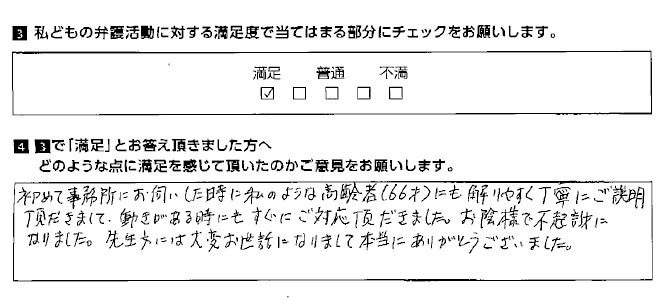 3 私どもの弁護活動に対する満足度で当てはまる部分にチェックをお願いします。
満足 普通 不満
☑ □ □ □ □
4 3で「満足」とお答え頂きました方へ
どのような点に満足を感じて頂いたのかご意見をお願いします。
初めて事務所にお伺いした時に私のような高齢者(66才)にも解りやすく丁寧にご説明
頂だきまして、動きがある時にもすぐにご対応頂だきました。お陰様で不起訴に
なりました。先生方には大変お世話になりまして本当にありがとうございました。